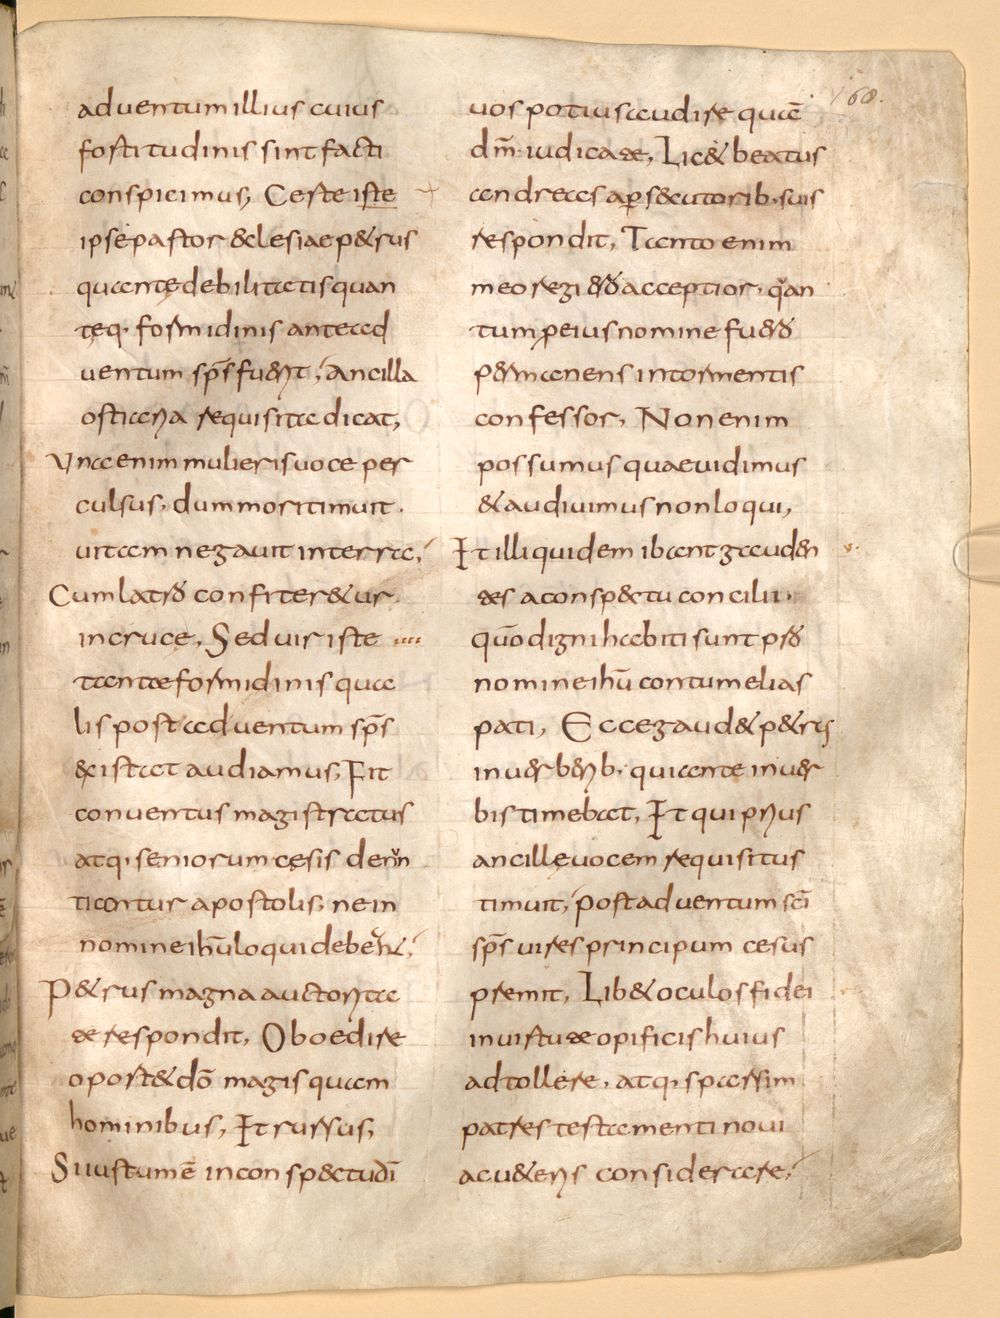 160.
aduentum illius cuius
fortitudinis sint facti
conspicimus, Certe iste
ipse pastor &clesiae p&rus
quante debilitatis quan
teq· formidinis ante ad
uentum sp̄s fuerit, ancilla
ostiaria requisita dicat,
Una enim mulieris uoce per
culsus, dum mori timuit.
uitam negauit in terra,
Cum latro confiter&ur
in cruce, Sed uir iste
tantae formidinis qua
lis post aduentum sp̄s
existat audiamus, Fit
conuentus magistratus
atq· seniorum cęsis denun
tiatur apostolis, ne in
nomine ih̄u loqui deber&,
P&rus magna auctorita
te respondit, Oboedire
oport& dō magis quam
hominibus, It rursus,
Si iustum ē in conspectu dī
uos potius audire quā
dm̄· iudicate, Lic& beatus
andreas a p̱secutorib· suis
respondit, Tanto enim
meo regi ero acceptior, quan
tum p̱ eius nomine fuero
permanens in tormentis
confessor, Non enim
possumus quae uidimus
& audiuimus non loqui,
It illi quidem ibant gauden
tes a conspectu concilii·
qūo digni habiti sunt pro
nomine ih̄u contumelias
pati, Ecce gaud& p&rus
in uerberib· qui ante in uer
bis timebat, It qui prius
ancillę uocem requisitus
timuit, post aduentum sc̄i
sp̄s uires principum cesus
premit, Lib& oculos fidei
in uirtute opificis huius
adtollere, atq· sparsim
patres testamenti noui
ac u&eris considerare,